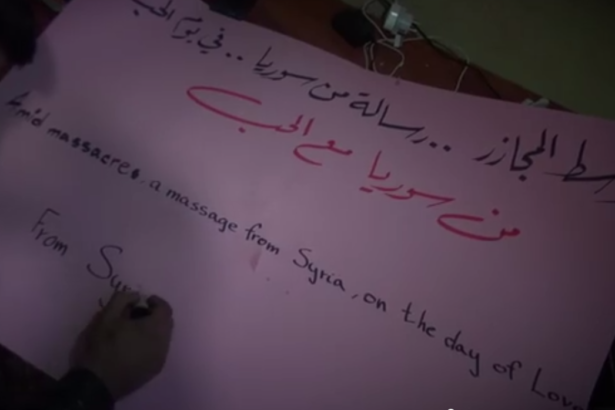 وسط المجازر .. رسالة من سوريا .. في يوم الحب
من سوريا مع الحب
Amid massacres, a massage from Syria, on the day of Love
From Sy